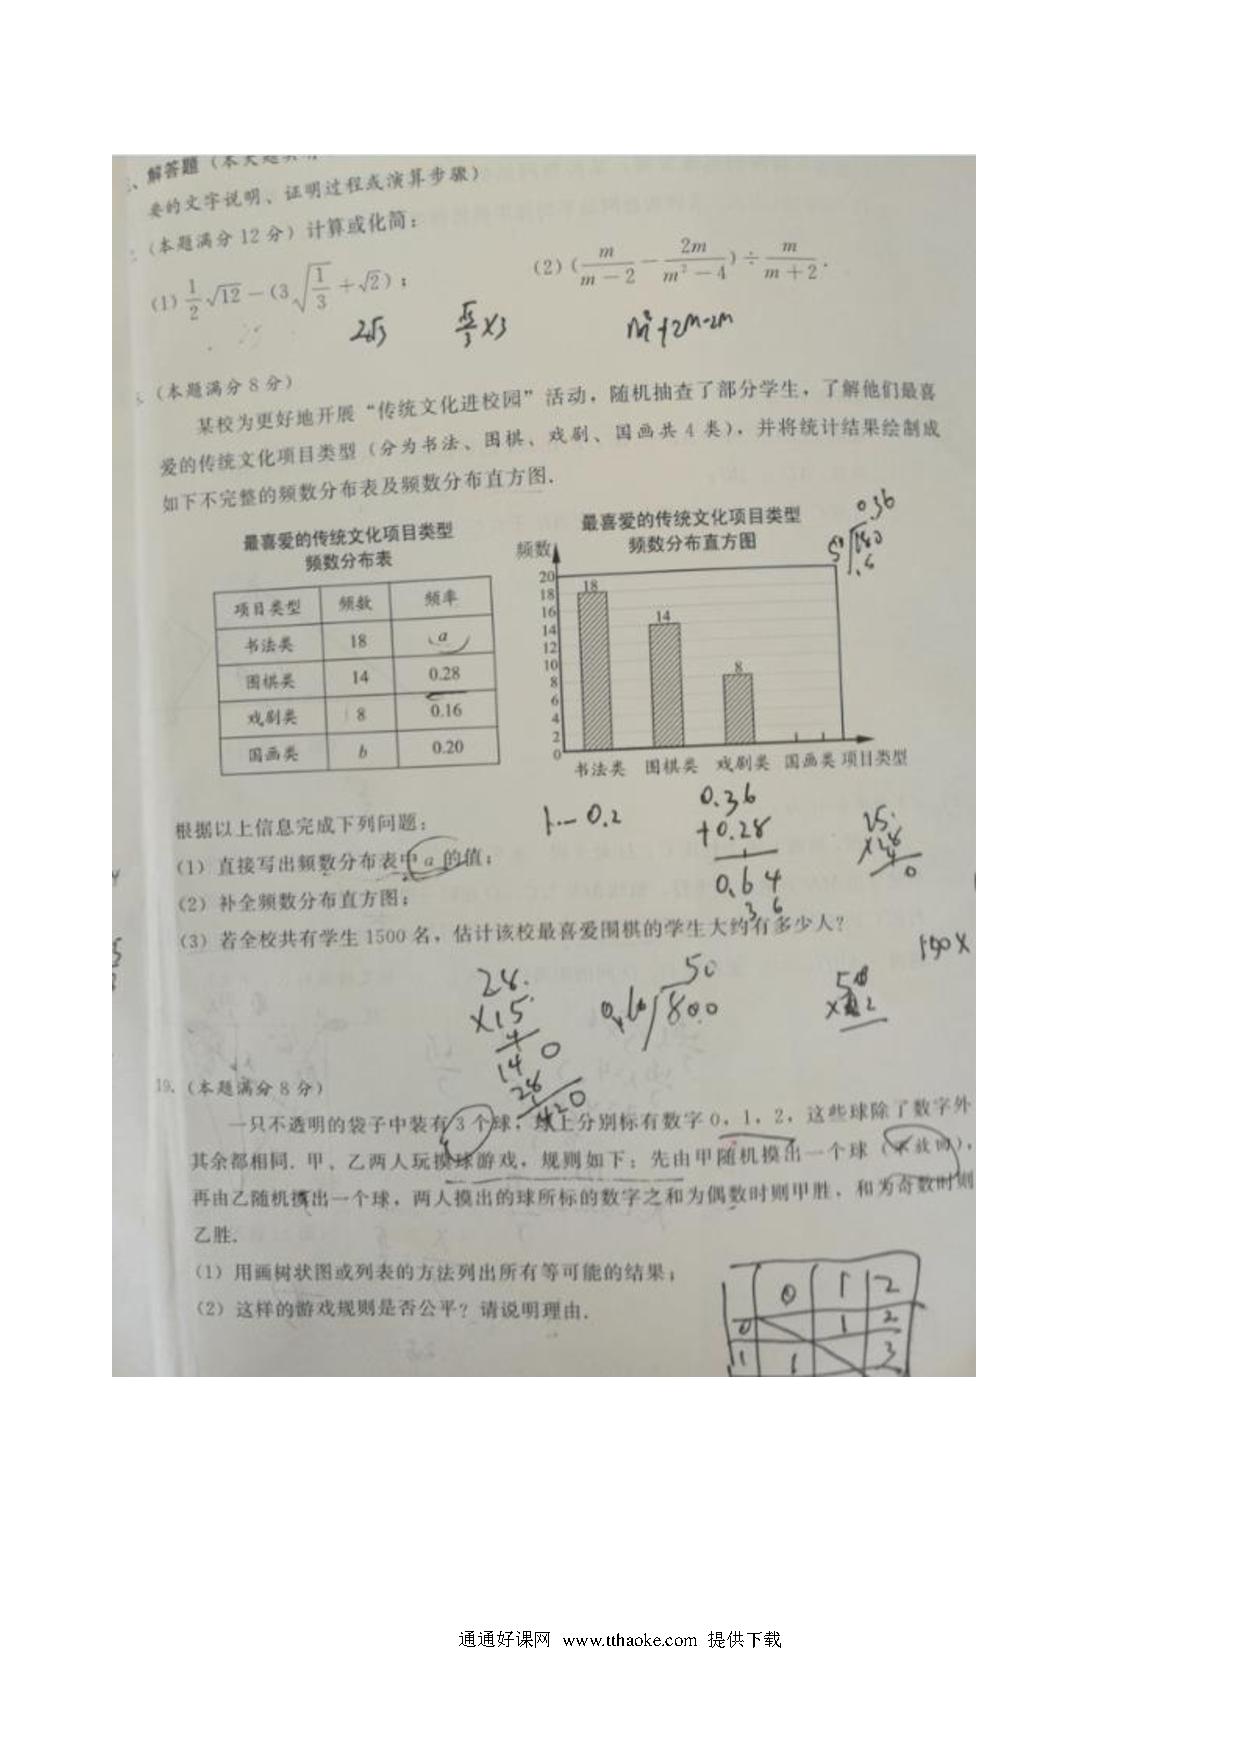 、解答题（本大题共
要的文字说明、证明过程或演算步骤）
（本题满分12分）计算或化简：
(1) \frac{1}{2}\sqrt{12}-(3\sqrt{\frac{1}{3}}+\sqrt{2})；  (2) (\frac{m}{m-2}-\frac{2m}{m^2-4})÷\frac{m}{m+2}.
2√3  ×3  m²+2m-2m
（本题满分8分）
某校为更好地开展“传统文化进校园”活动，随机抽查了部分学生，了解他们最喜
爱的传统文化项目类型（分为书法、围棋、戏剧、国画共4类），并将统计结果绘制成
如下不完整的频数分布表及频数分布直方图.
最喜爱的传统文化项目类型
频数分布表
项目类型 频数 频率
书法类 18 a
围棋类 14 0.28
戏剧类 8 0.16
国画类 b 0.20
0.36
最喜爱的传统文化项目类型
频数分布直方图
频数
20
18
16
14
12
10
8
6
4
2
0
18
14
8
书法类 围棋类 戏剧类 国画类 项目类型
1-0.2
0.36
+0.28
0.64
36
根据以上信息完成下列问题：
(1) 直接写出频数分布表中 a 的值；
(2) 补全频数分布直方图；
(3) 若全校共有学生1500名，估计该校最喜爱围棋的学生大约有多少人？
28
×15
14 0
28
420
50
0.16 800
19. （本题满分8分）
一只不透明的袋子中装有3个球，球上分别标有数字0，1，2，这些球除了数字外
其余都相同. 甲、乙两人玩摸球游戏，规则如下：先由甲随机摸出一个球（不放回），
再由乙随机摸出一个球，两人摸出的球所标的数字之和为偶数时则甲胜，和为奇数时则
乙胜.
(1) 用画树状图或列表的方法列出所有等可能的结果；
(2) 这样的游戏规则是否公平？请说明理由.
0 1 2
0 1 2
1 1 3
通通好课网 www.tthaoke.com 提供下载